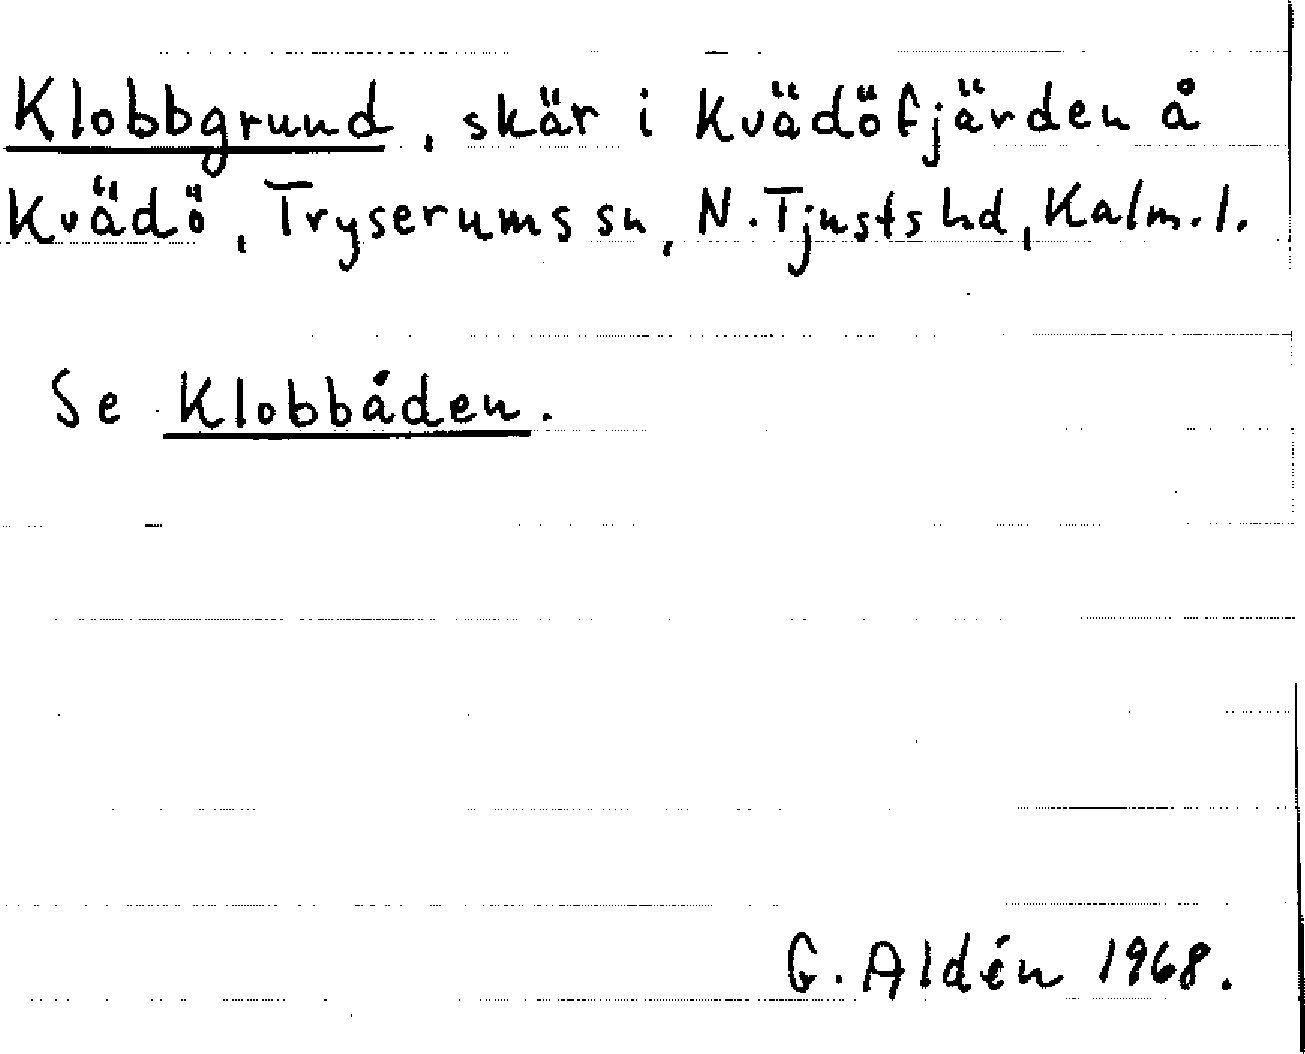 Klobbgrund, skär i Kvädöfjärden å
Kvädö, Tryserums sn, N. Tjusts hd, Kalm. l.
Se Klobbåden.
G. Aldén 1968.